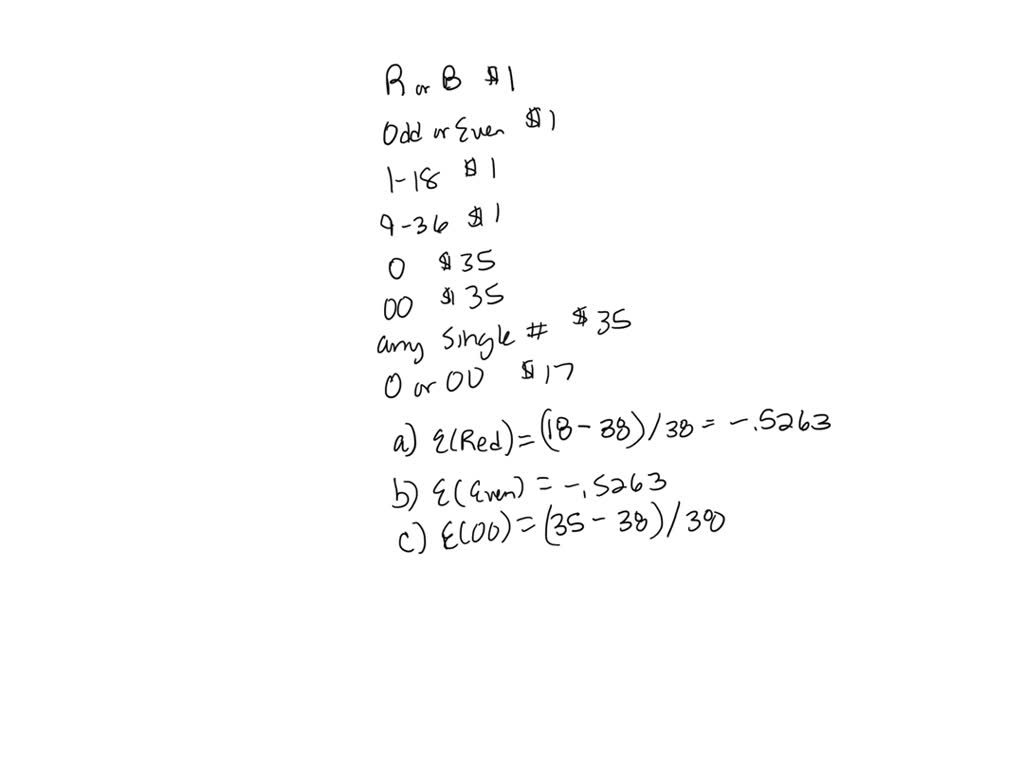 R or B $1
Odd or Even $1
1-18 $1
9-36 $1
0 $35
00 $35
any single # $35
0 or 00 $17
a) E(Red) = (18 - 38)/38 = -.5263
b) E(Even) = -.5263
c) E(00) = (35 - 38)/38